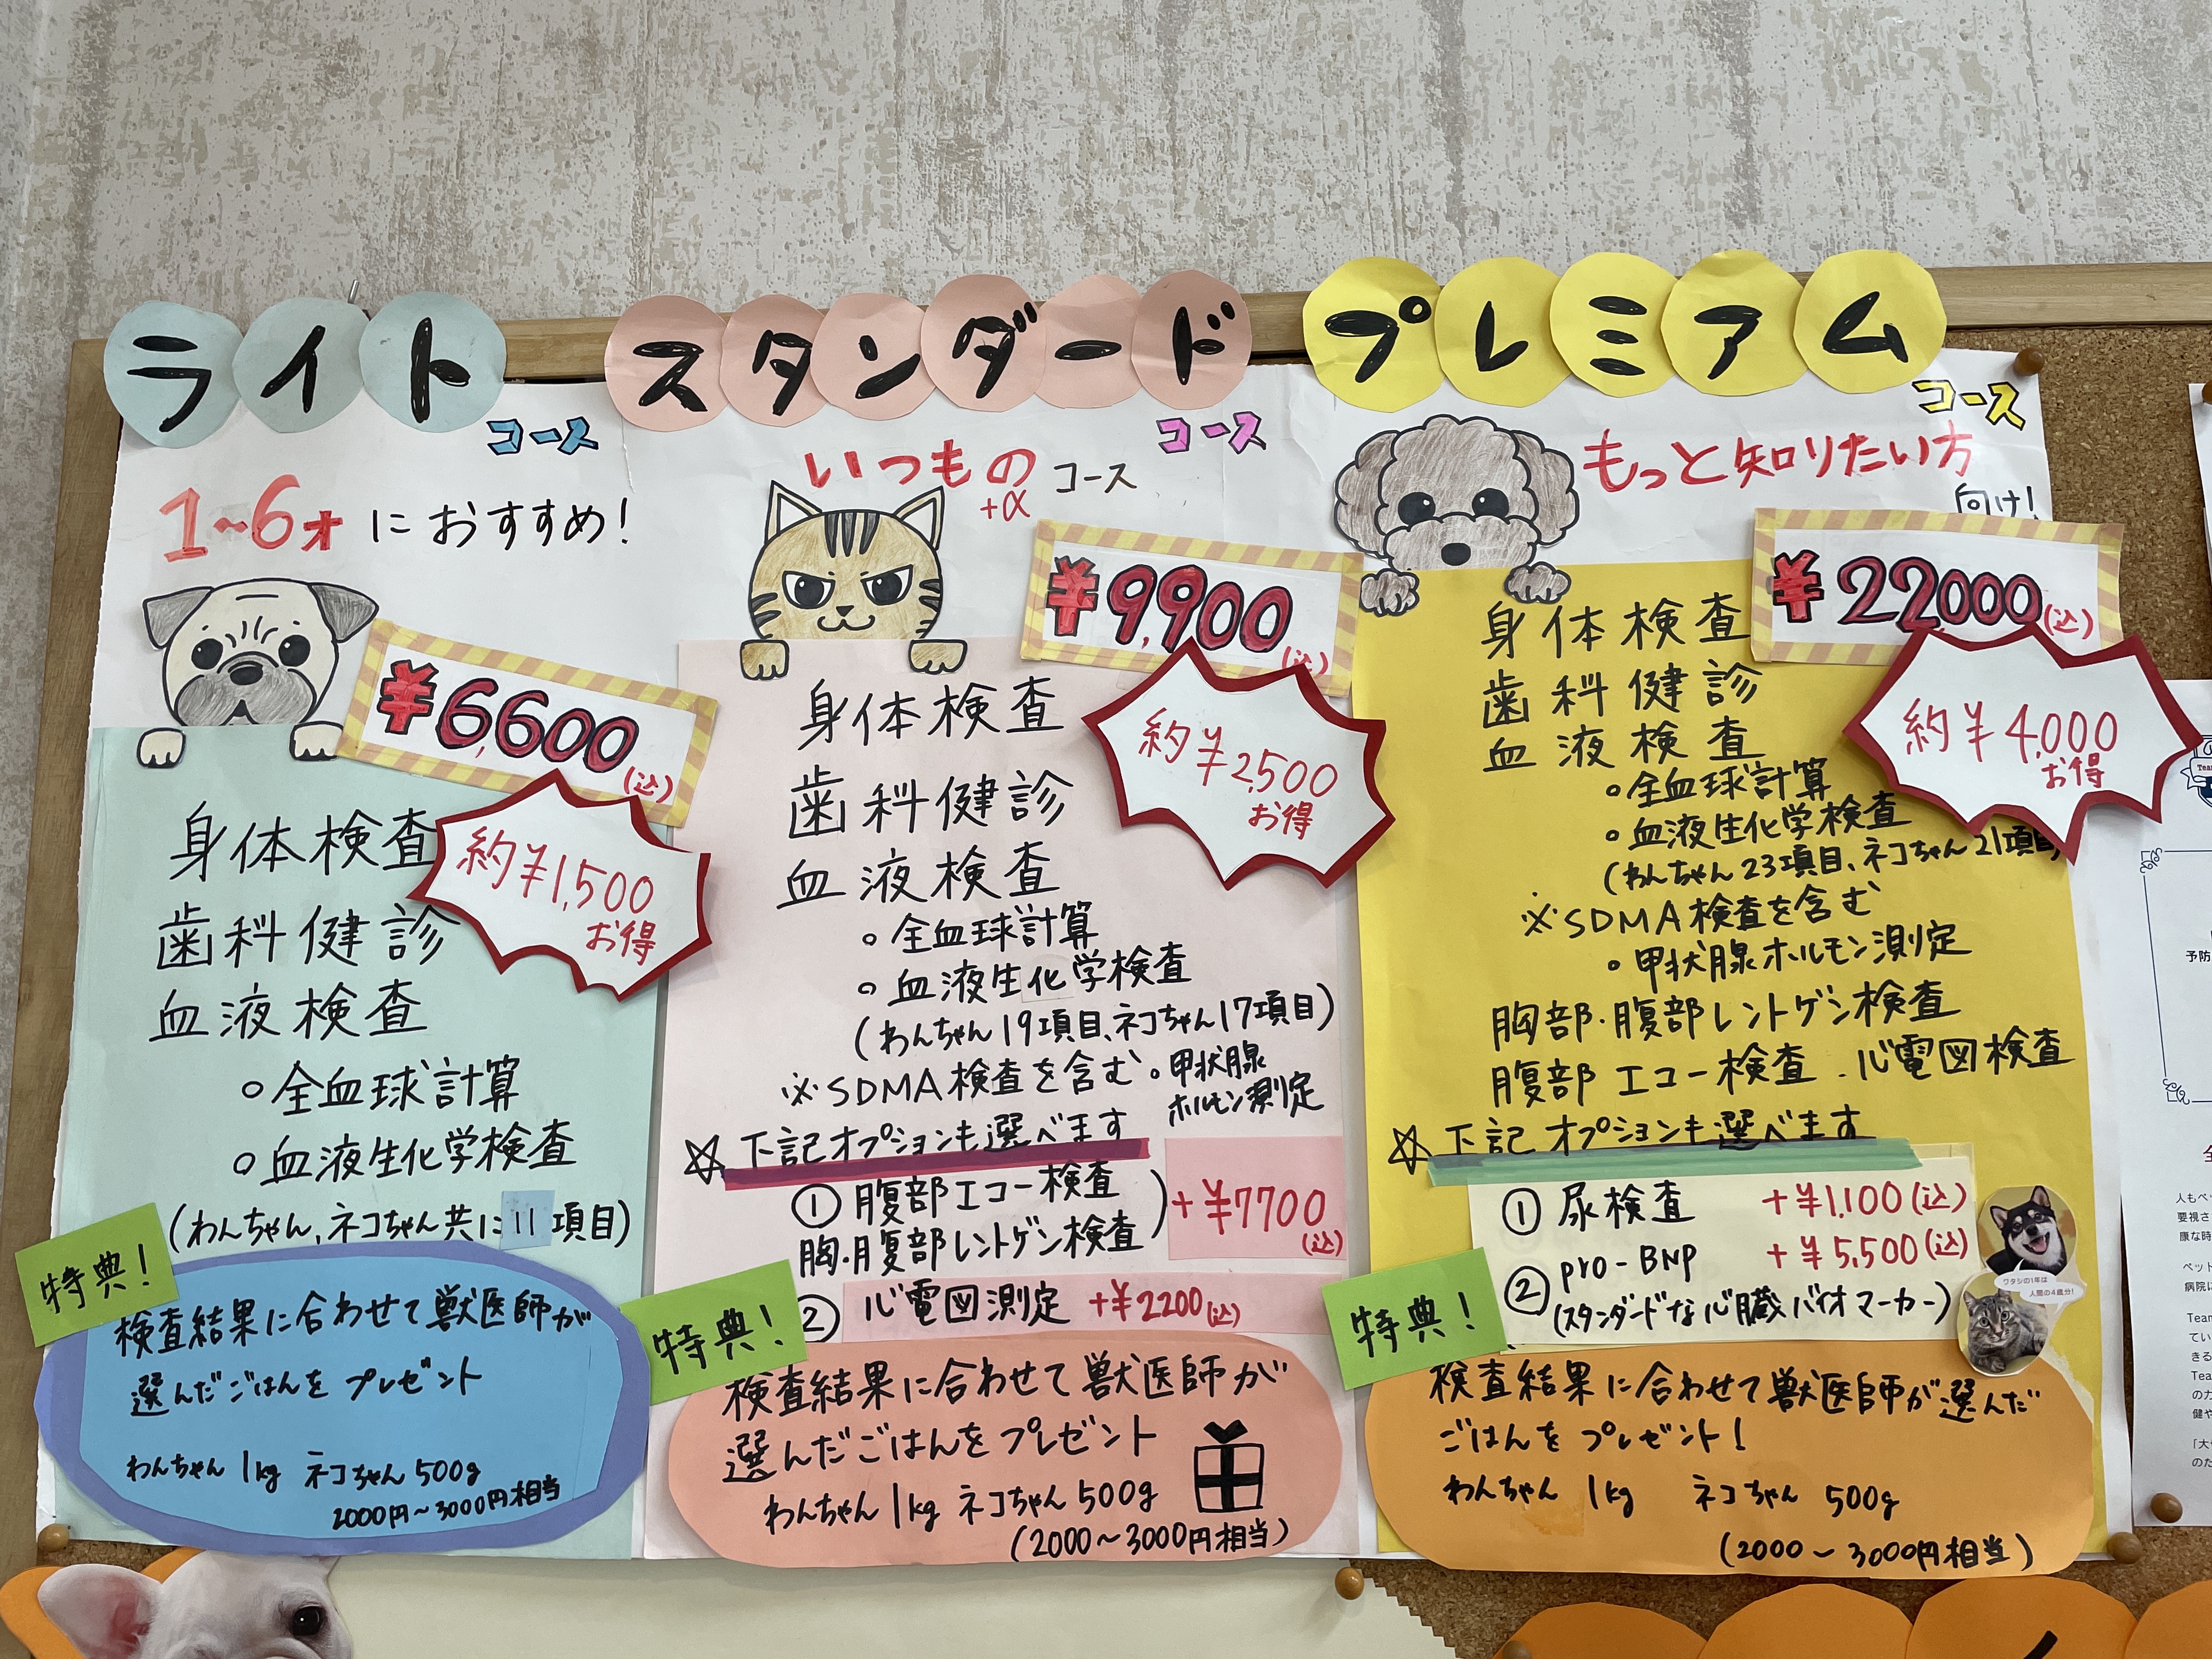 ライト
コース
1~6才 におすすめ!
¥6,600
(込)
約¥1,500
お得
身体検査
歯科健診
血液検査
○全血球計算
○血液生化学検査
(わんちゃん、ネコちゃん共に11項目)
特典!
検査結果に合わせて獣医師が
選んだごはんを プレゼント
わんちゃん 1kg ネコちゃん 500g
2000円~3000円相当
スタンダード
コース
いつもの コース
+α
¥9,900
(込)
約¥2,500
お得
身体検査
歯科健診
血液検査
○全血球計算
○血液生化学検査
(わんちゃん19項目、ネコちゃん17項目)
※SDMA検査を含む ○甲状腺
ホルモン測定
☆下記オプションも選べます
①腹部エコー検査
胸・腹部レントゲン検査) +¥7700
(込)
② 心電図測定 +¥2200(込)
特典!
検査結果に合わせて獣医師が
選んだごはんを プレゼント
わんちゃん 1kg ネコちゃん 500g
(2000~3000円相当)
プレミアム
コース
もっと知りたい方
向け!
¥22000(込)
約¥4,000
お得
身体検査
歯科健診
血液検査
○全血球計算
○血液生化学検査
(わんちゃん23項目、ネコちゃん21項目)
※SDMA検査を含む
○甲状腺ホルモン測定
胸部・腹部レントゲン検査
腹部エコー検査・心電図検査
☆下記オプションも選べます
① 尿検査 +¥1,100(込)
② pro-BNP +¥5,500(込)
(スタンダードな心臓バイオマーカー)
ワタシの1年は
人間の4歳分!
特典!
検査結果に合わせて獣医師が選んだ
ごはんを プレゼント!
わんちゃん 1kg ネコちゃん 500g
(2000~3000円相当)